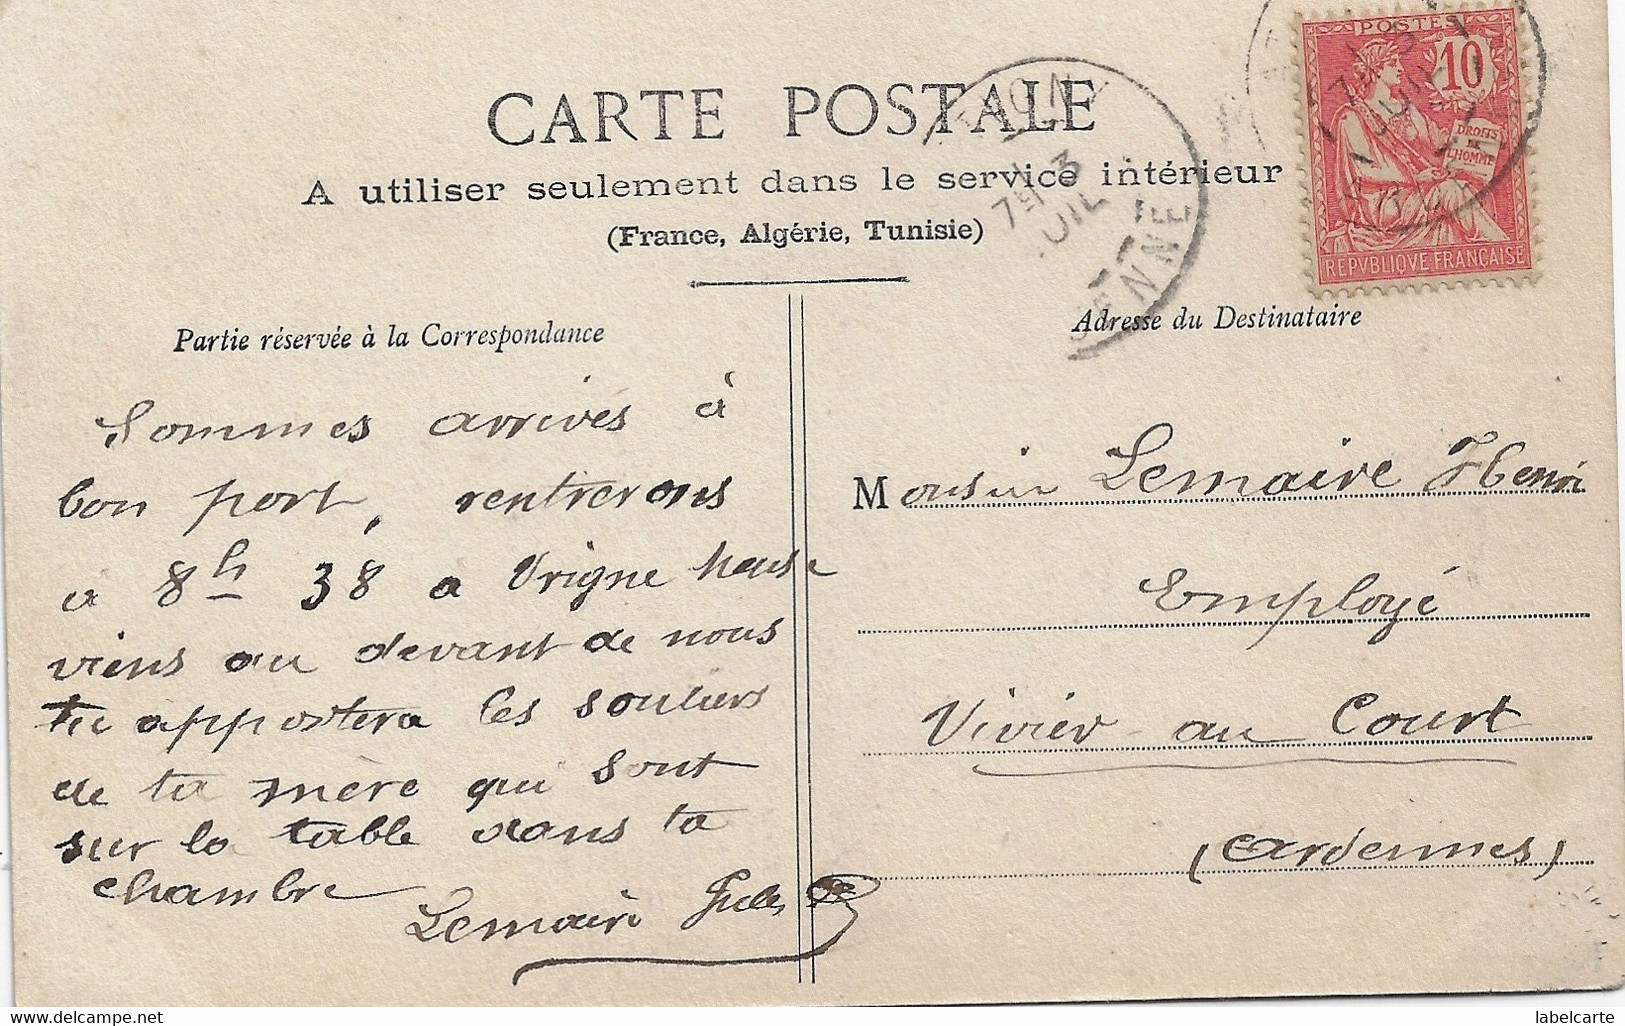 CARTE POSTALE
A utiliser seulement dans le service intérieur
(France, Algérie, Tunisie)
POSTES
10
DROITS
DE
L'HOMME
REPVBLIQVE FRANÇAISE
7 3
JUIL
Partie réservée à la Correspondance
Sommes arrivés à
bon port, rentrerons
à 8h 38 a Vrigne
viens au devant de nous
tu apportera les souliers
de ta mère qui sont
sur la table dans ta
chambre
Lemaire Jules
Adresse du Destinataire
Monsieur Lemaire Henri
Employé
Vivier au Court
(Ardennes)
labelcarte